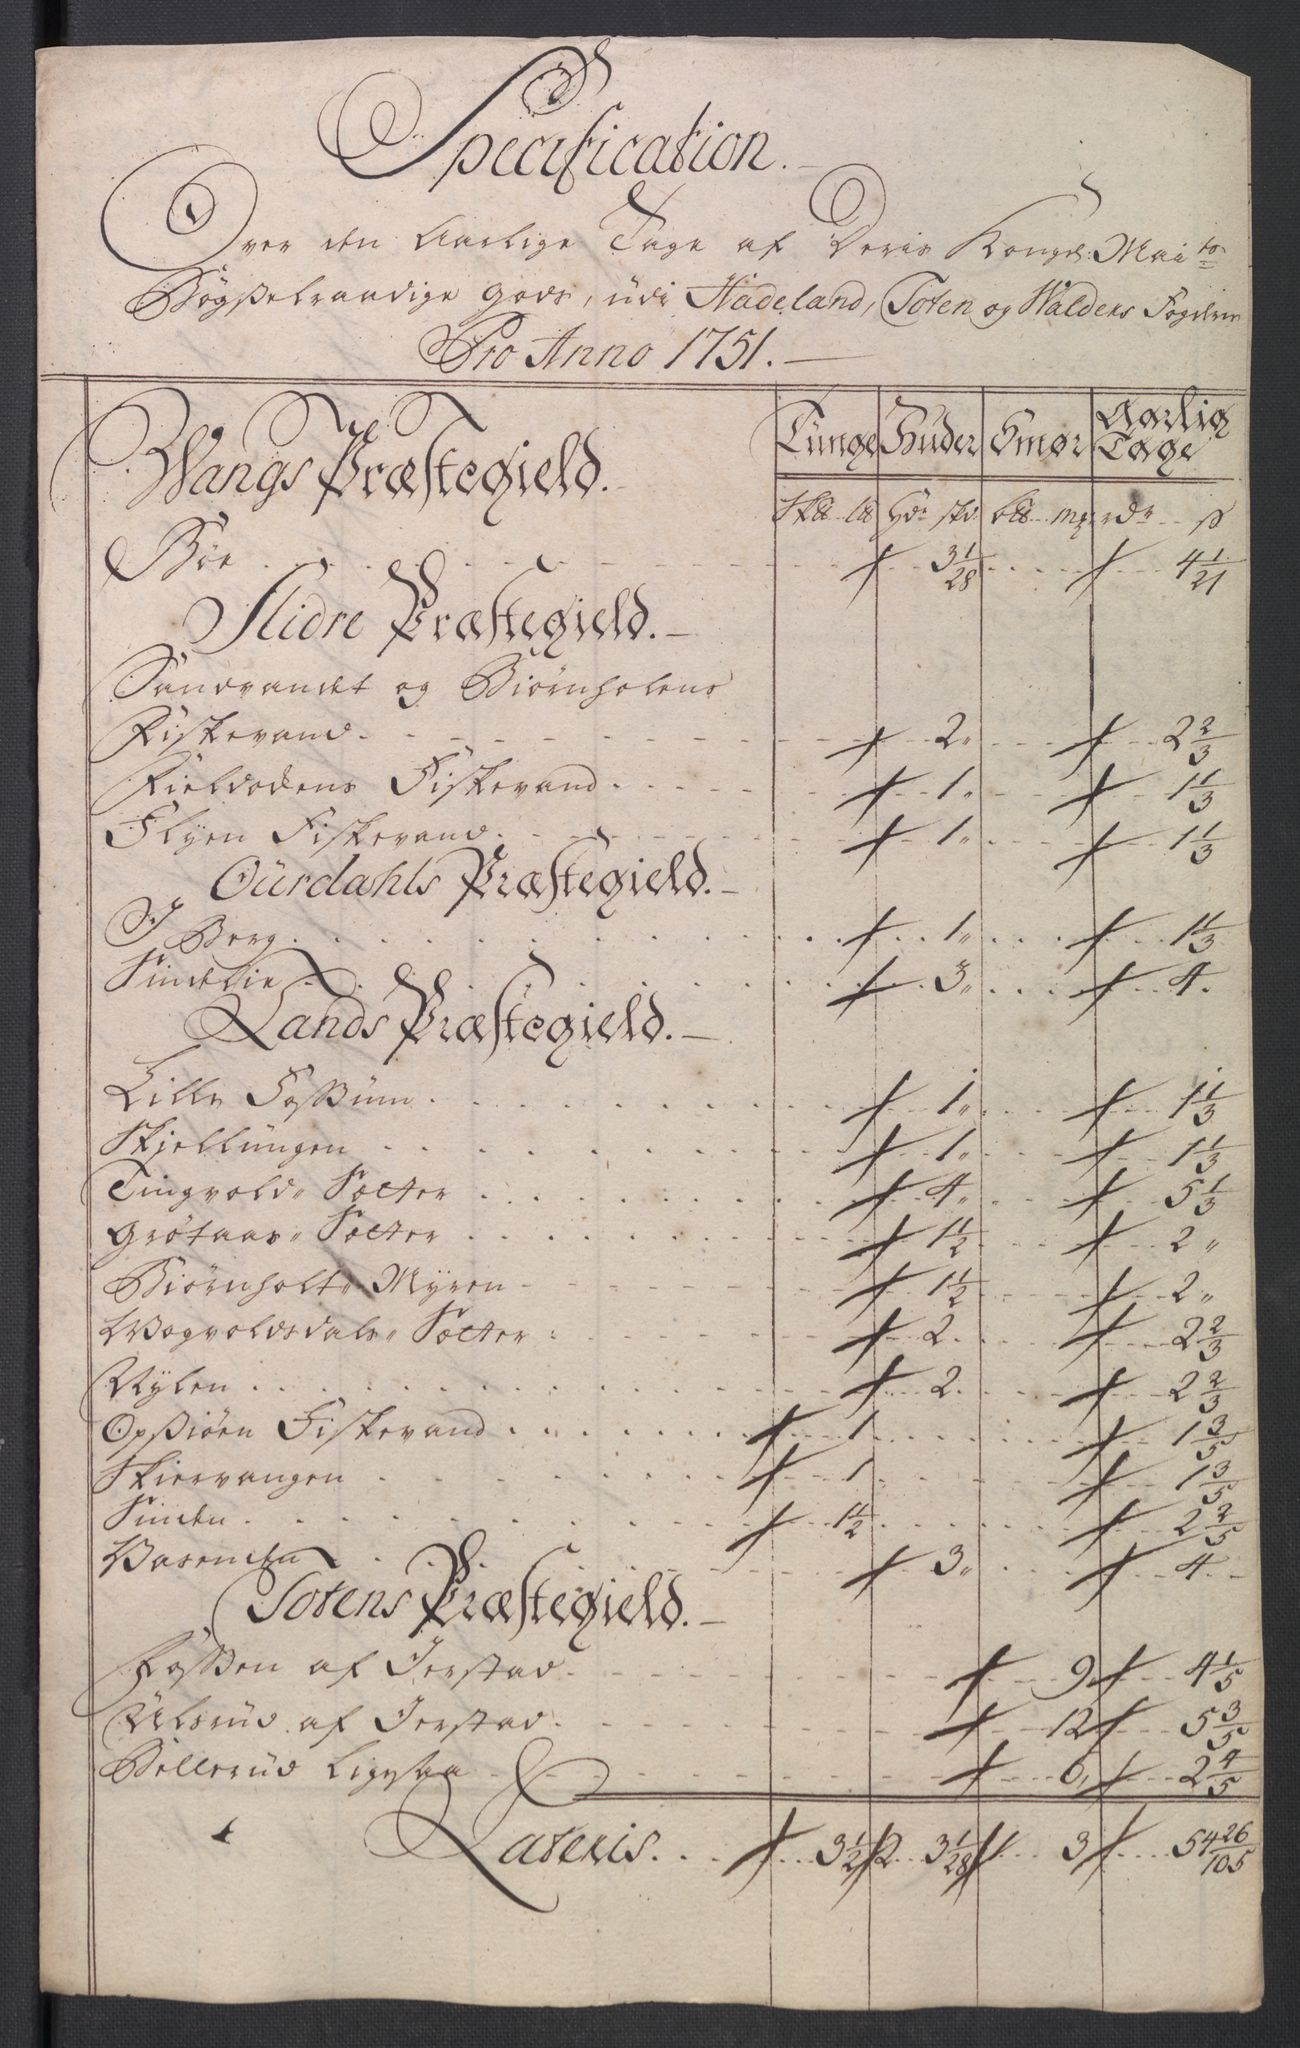 Specification.
Over den Aarlige Tage af Deris Kongl: Maits
Bögselraadige gods, udi Hadeland, Toten og Walders Fogderie
Pro Anno 1751.
Wangs Præstegield. Tunge Huder Smør Aarlig Tage
Sk℔ l℔ hdr skd b℔ mgr rdr ß
Böe / 3 1/28 / 4 1/21
Slidre Præstegield.
Sandvandet og Biörnholens
Fiskevand / 2 „ / 2 2/3
Fieldodens Fiskevand / 1 „ / 1 1/3
Flyen Fiskevand / 1 „ / 1 1/3
Ourdahls Præstegield.
I Berg / 1 „ / 1 1/3
Sindelie / 3 „ / 4.
Lands Præstegield.
Lille Fossum / 1 „ / 1 1/3
Skjellungen / 1 „ / 1 1/3
Tingvold„ Sæter / 4 „ / 5 1/3
Grötaas„ Sæter / 1 1/2 / 2 „
Biörnholt„ Myren / 1 1/2 / 2 „
Wogvoldsdals„ Sæter / 2. / 2 2/3
Nylen / 2. / 2 2/3
Opsiöen Fiskevand / 1 / 1 3/5
Skiervangen / 1 / 1 3/5
Sinden / 1 1/2 / 2 2/5
Vasenden / 3 „ / 4.
Totens Præstegield.
Fossen af Ierstad / 9 / 4 1/5
Ulsrud af Ierstad / 12 / 5 3/5
Billerud Ligesaa / 6, / 2 4/5
Lateris. / 3 1/2 / 2 3 1/28 / 1 3 / 54 26/105